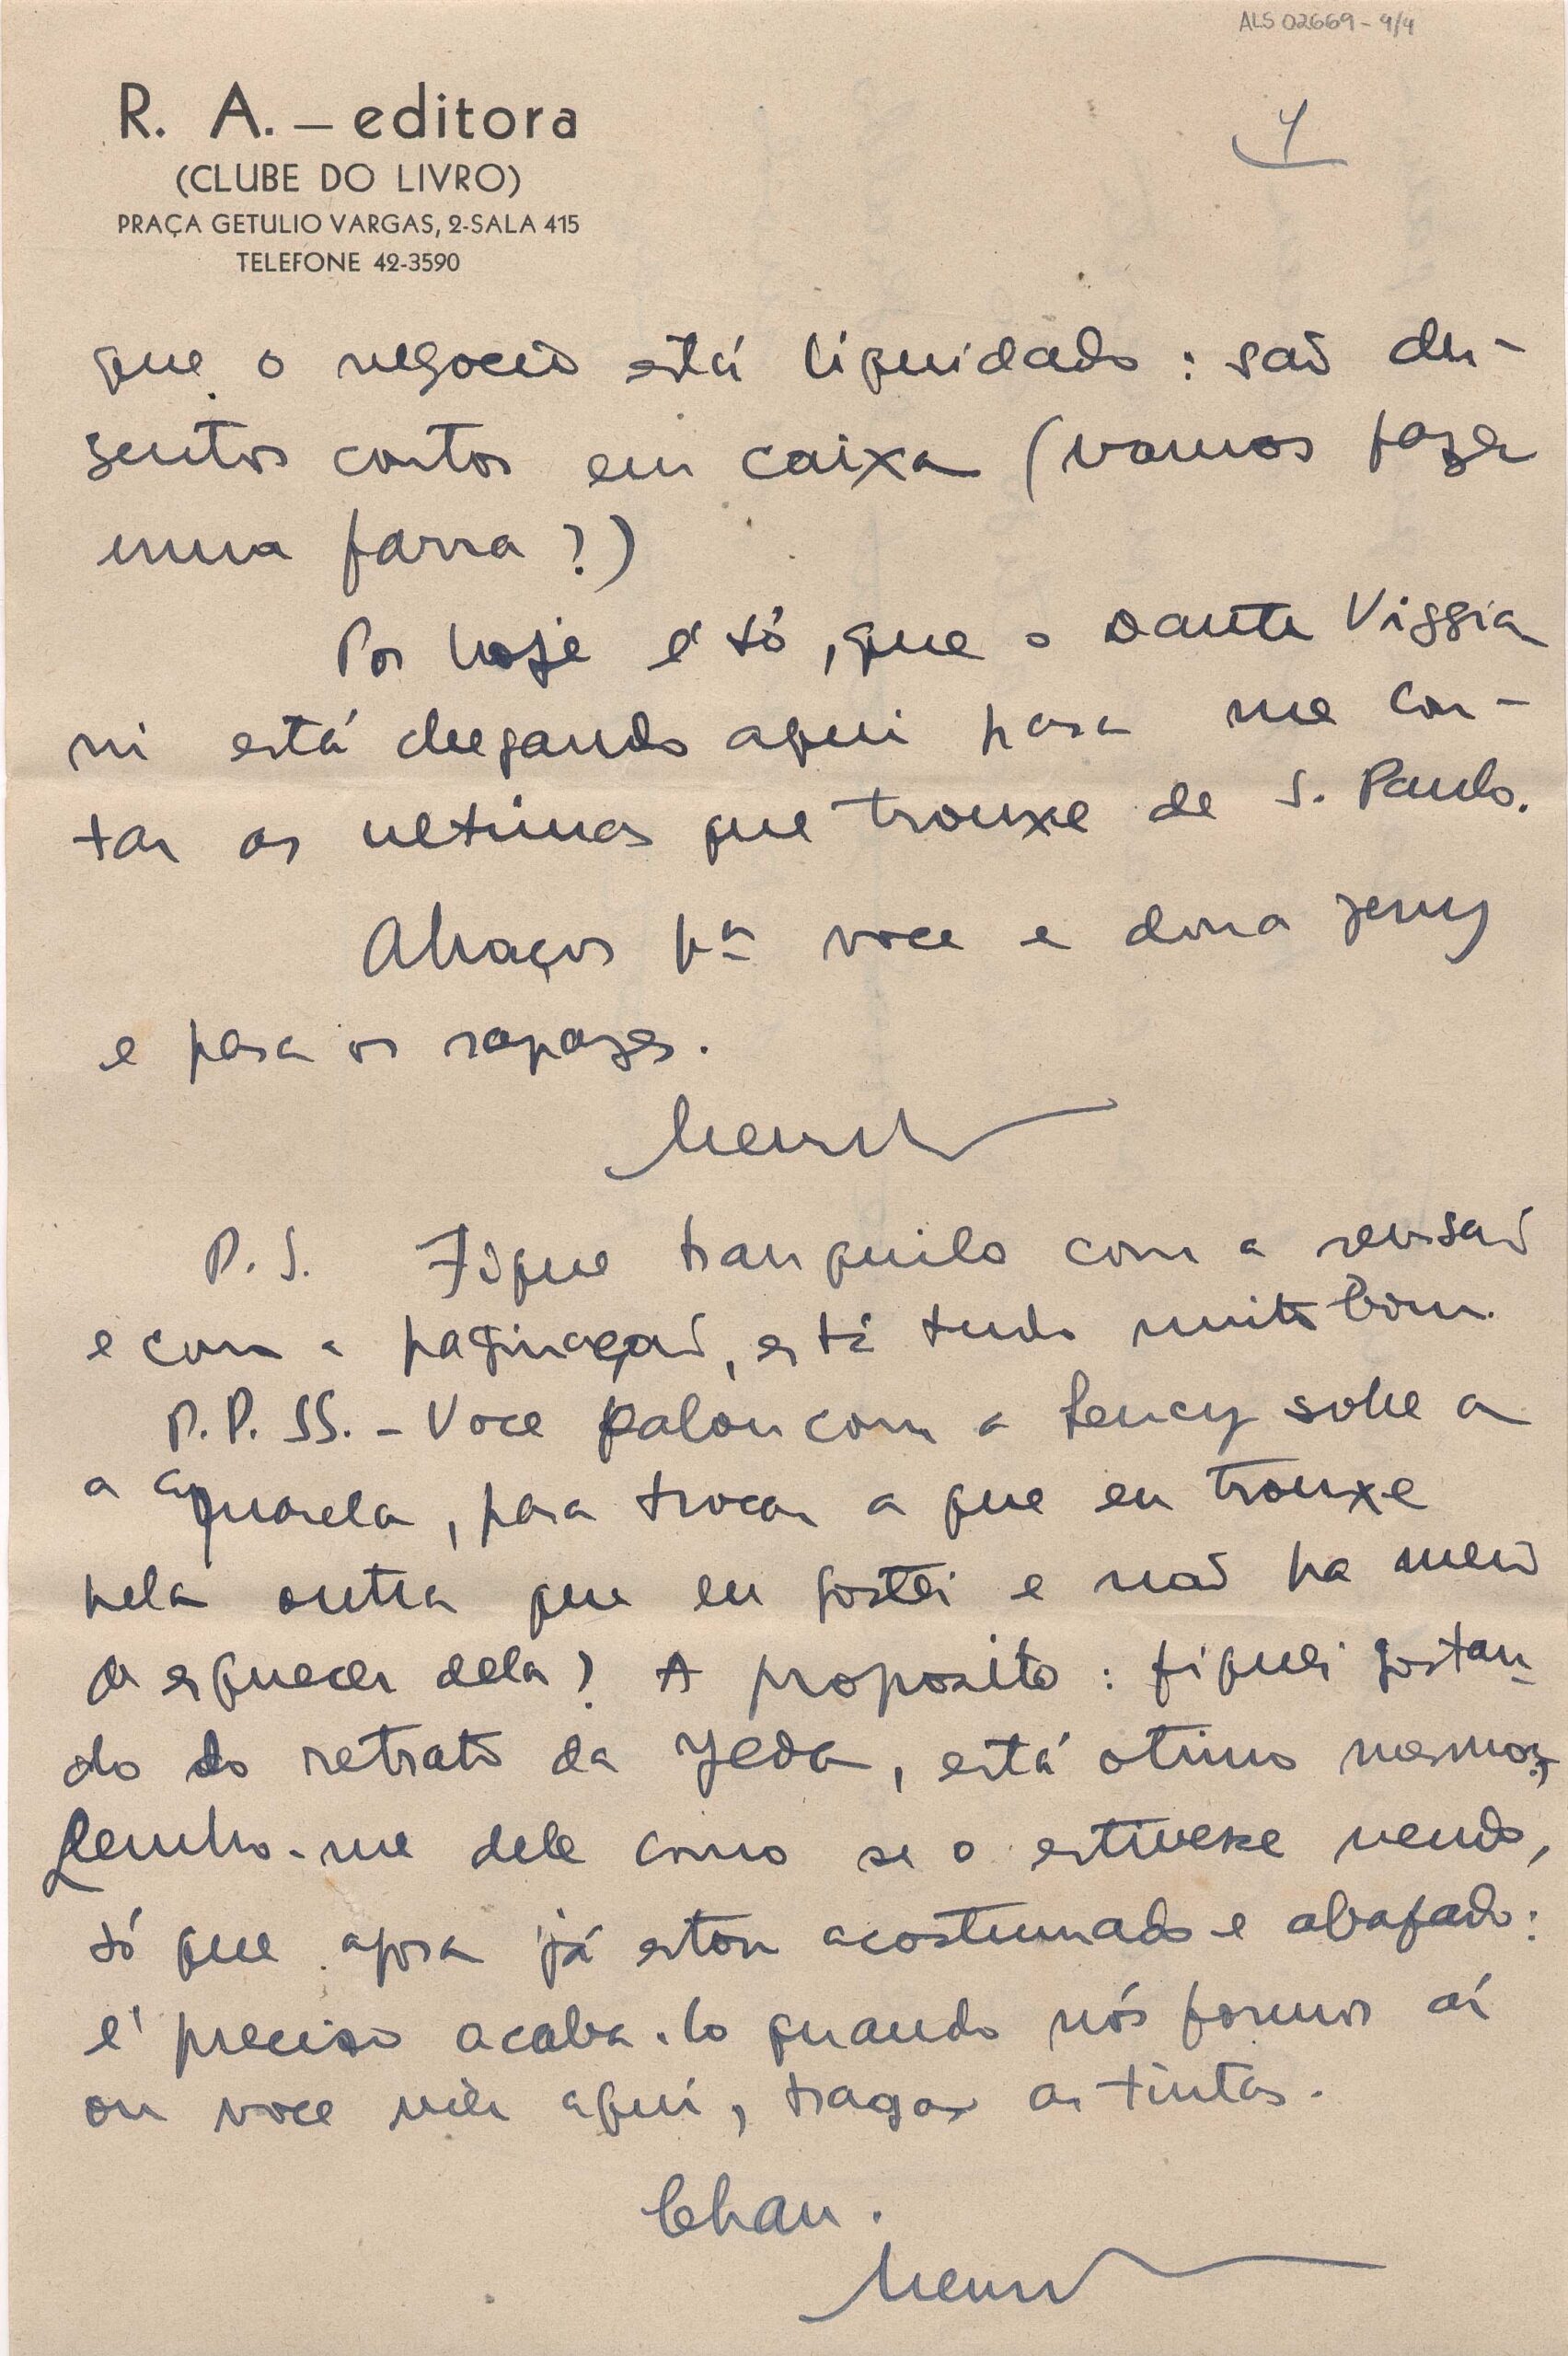 ALS 02669-4/4
R. A. — editora
(CLUBE DO LIVRO)
PRAÇA GETULIO VARGAS, 2-SALA 415
TELEFONE 42-3590
4
que o negocio está liquidado: são du-
sentos contos em caixa (vamos fazer
uma farra?)
Por hoje é só, que o Dante Viggia
ni está chegando aqui para me con-
tar as ultimas que trouxe de S. Paulo.
Abraços pa voce e dona Jeny
e para os rapazes.
P.S. Fique tranquilo com a revisão
e com a paginação, está tudo muito bom.
P.P.SS. - Voce falou com a Lency sobre a
a aquarela, para trocar a que eu trouxe
pela outra que eu gostei e não ha meio
de esquecer dela? A proposito: fiquei gostan-
do do retrato da Yeda, está otimo mesmo,
Lembro-me dele como se o estivesse vendo,
só que agora já estou acostumado e abafado:
é preciso acaba-lo quando nós formos aí
ou voce vier aqui, traga as tintas.
Chau.